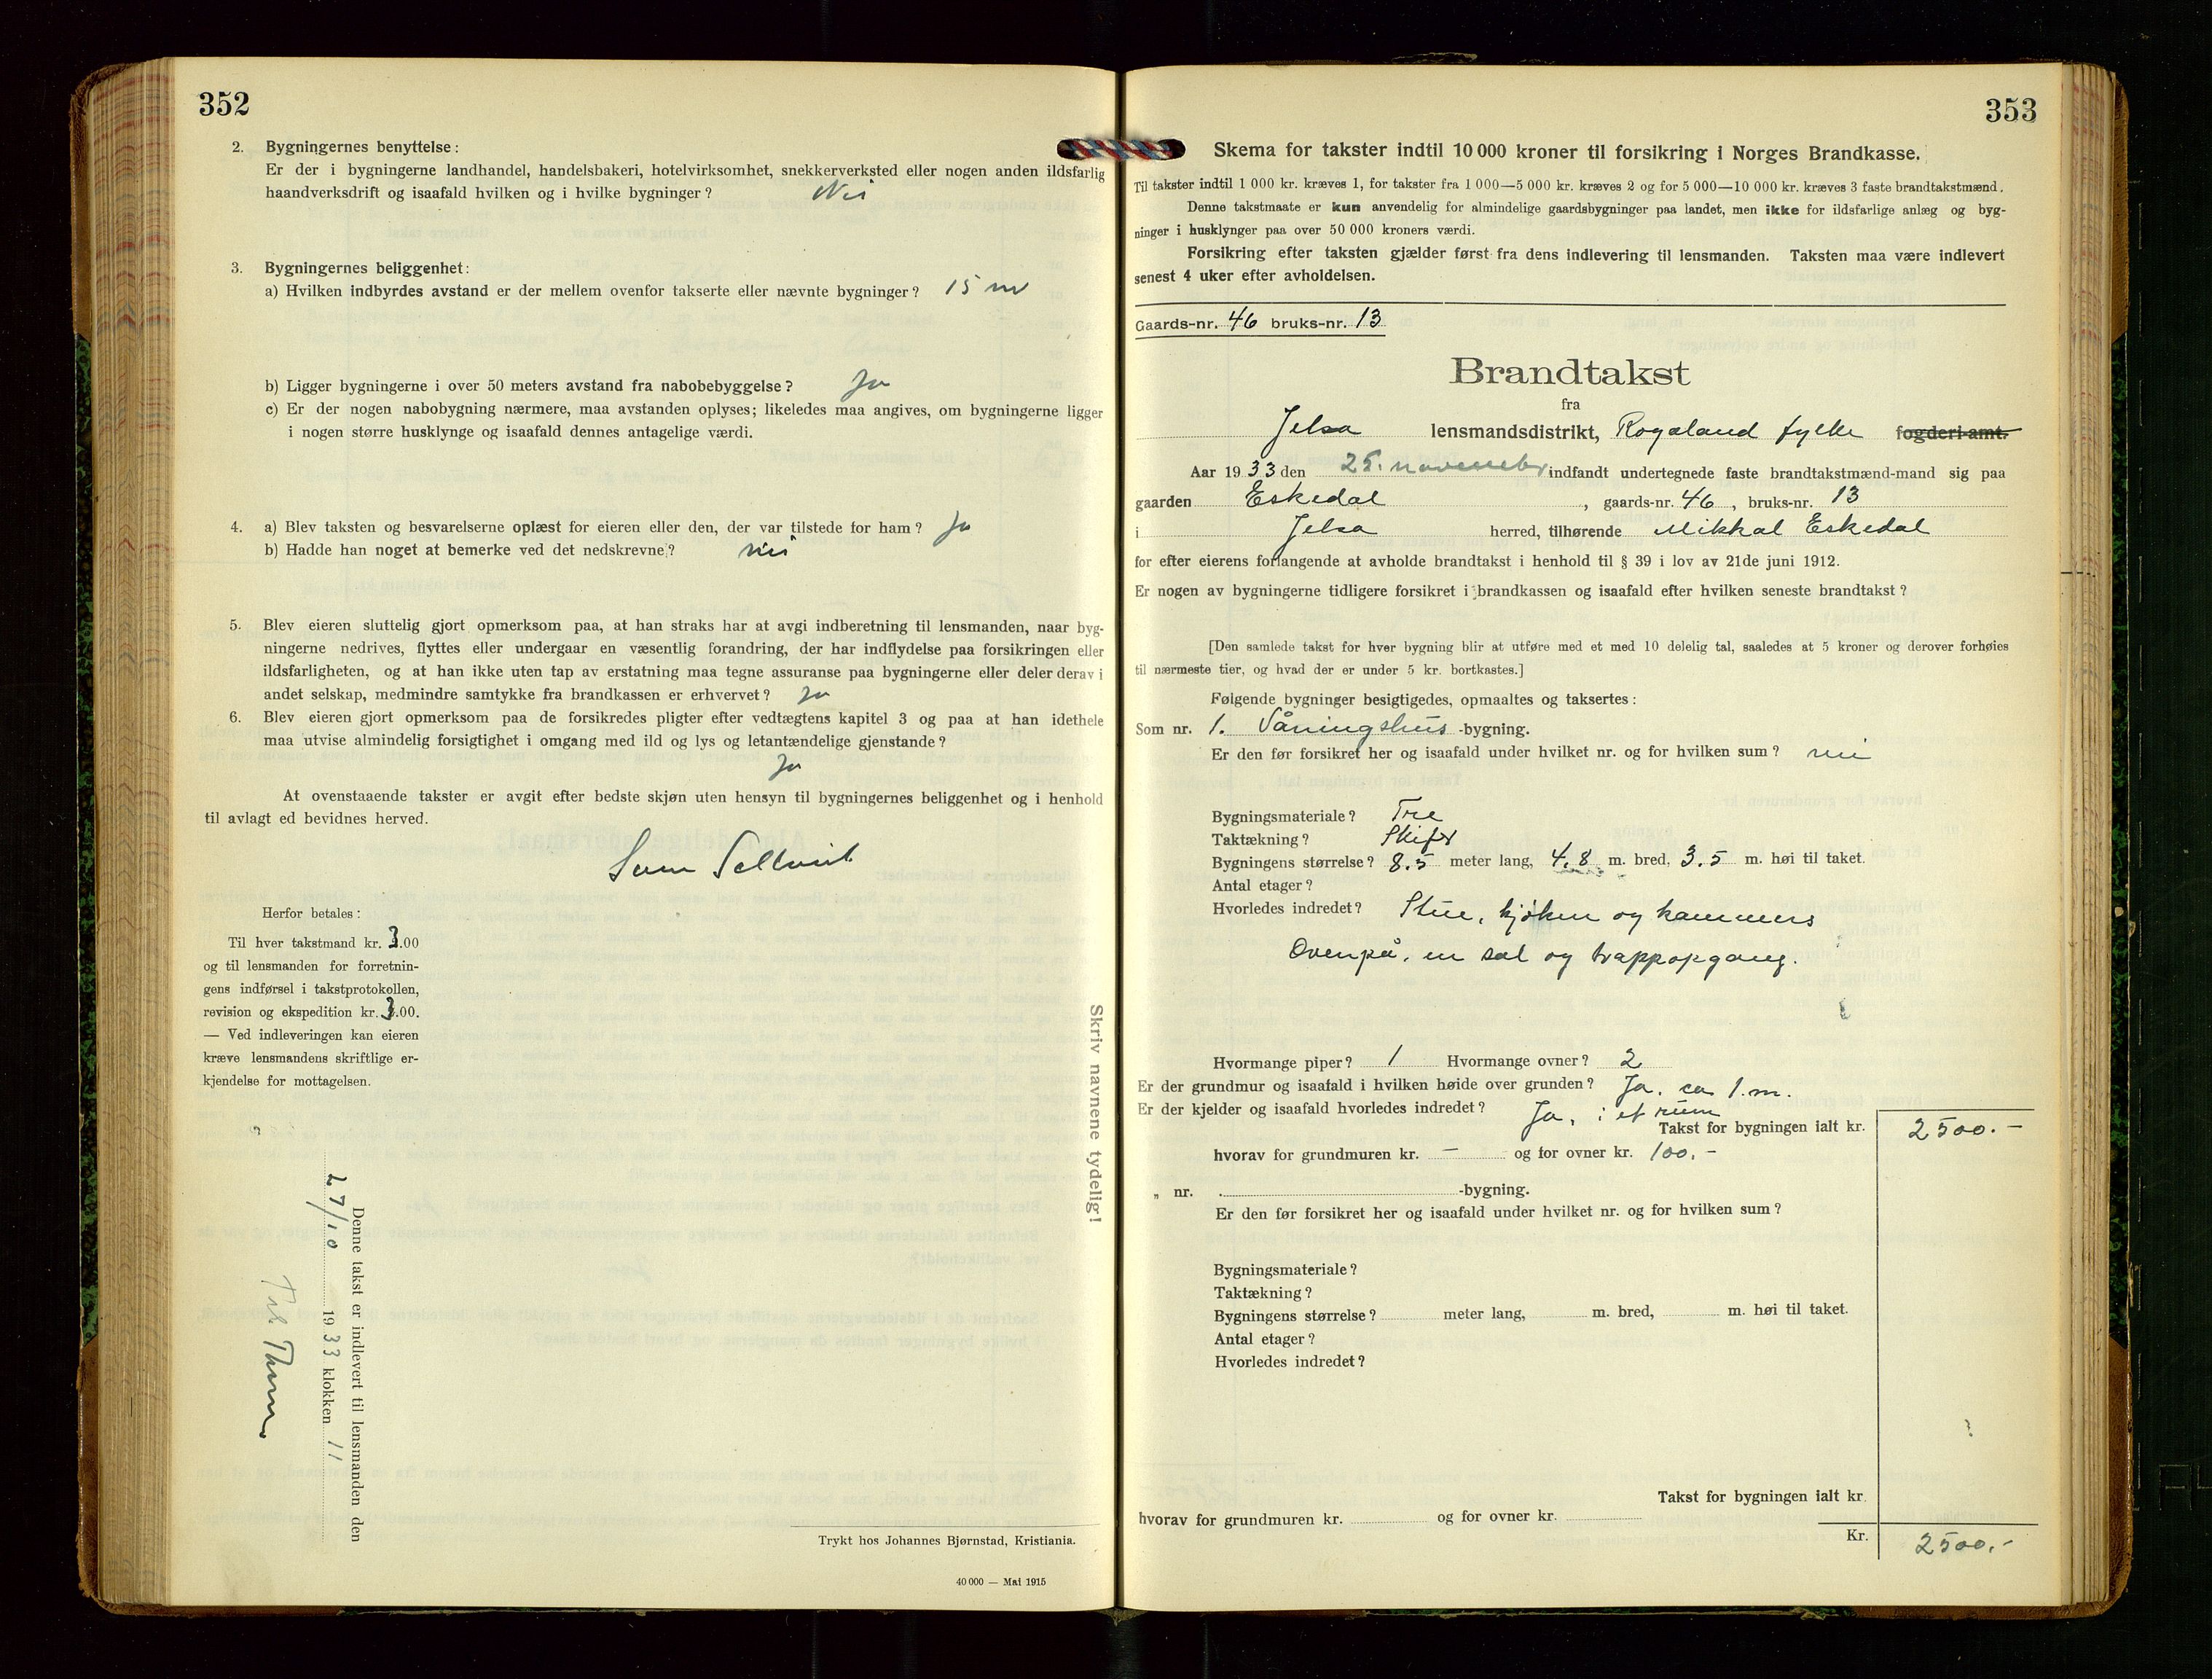 352
2. Bygningernes benyttelse:
Er der i bygningerne landhandel, handelsbakeri, hotelvirksomhet, snekkerverksted eller nogen anden ildsfarlig
haandverksdrift og isaafald hvilken og i hvilke bygninger? Nei
3. Bygningernes beliggenhet:
a) Hvilken indbyrdes avstand er der mellem ovenfor takserte eller nævnte bygninger? 15 m
b) Ligger bygningerne i over 50 meters avstand fra nabobebyggelse? Ja
c) Er der nogen nabobygning nærmere, maa avstanden oplyses; likeledes maa angives, om bygningerne ligger
i nogen større husklynge og isaafald dennes antagelige værdi.
4. a) Blev taksten og besvarelserne oplæst for eieren eller den, der var tilstede for ham? Ja
b) Hadde han noget at bemerke ved det nedskrevne? nei
5. Blev eieren sluttelig gjort opmerksom paa, at han straks har at avgi indberetning til lensmanden, naar byg-
ningerne nedrives, flyttes eller undergaar en væsentlig forandring, der har indflydelse paa forsikringen eller
ildsfarligheten, og at han ikke uten tap av erstatning maa tegne assuranse paa bygningerne eller deler derav i
andet selskap, medmindre samtykke fra brandkassen er erhvervet? Ja
6. Blev eieren gjort opmerksom paa de forsikredes pligter efter vedtægtens kapitel 3 og paa at han idethele
maa utvise almindelig forsigtighet i omgang med ild og lys og letantændelige gjenstande?
Ja
At ovenstaaende takster er avgit efter bedste skjøn uten hensyn til bygningernes beliggenhet og i henhold
til avlagt ed bevidnes herved.
Herfor betales:
Til hver takstmand kr. 3.00
og til lensmanden for forretnin-
gens indførsel i takstprotokollen,
revision og ekspedition kr. 3.00.
— Ved indleveringen kan eieren
kræve lensmandens skriftlige er-
kjendelse for mottagelsen.
Skriv navnene tydelig!
Denne takst er indlevert til lensmanden den
27/10 1933 klokken 11
Trykt hos Johannes Bjørnstad, Kristiania.
40 000 — Mai 1915
353
Skema for takster indtil 10 000 kroner til forsikring i Norges Brandkasse.
Til takster indtil 1 000 kr. kræves 1, for takster fra 1 000—5 000 kr. kræves 2 og for 5 000—10 000 kr. kræves 3 faste brandtakstmænd.
Denne takstmaate er kun anvendelig for almindelige gaardsbygninger paa landet, men ikke for ildsfarlige anlæg og byg-
ninger i husklynger paa over 50 000 kroners værdi.
Forsikring efter taksten gjælder først fra dens indlevering til lensmanden. Taksten maa være indlevert
senest 4 uker efter avholdelsen.
Gaards-nr. 46 bruks-nr. 13
Brandtakst
fra
Jelsa lensmandsdistrikt, Rogaland fylke fogderi-amt.
Aar 1933 den 25. november indfandt undertegnede faste brandtakstmænd-mand sig paa
gaarden Eskedal, gaards-nr. 46, bruks-nr. 13
i Jelsa herred, tilhørende Mikkal Eskedal
for efter eierens forlangende at avholde brandtakst i henhold til § 39 i lov av 21de juni 1912.
Er nogen av bygningerne tidligere forsikret i brandkassen og isaafald efter hvilken seneste brandtakst?
[Den samlede takst for hver bygning blir at utføre med et med 10 delelig tal, saaledes at 5 kroner og derover forhøies
til nærmeste tier, og hvad der er under 5 kr. bortkastes.]
Følgende bygninger besigtigedes, opmaaltes og taksertes:
Som nr. 1. Våningshus -bygning.
Er den før forsikret her og isaafald under hvilket nr. og for hvilken sum? nei
Bygningsmateriale? Tre
Taktækning? Skifer
Bygningens størrelse? 8.5 meter lang, 4.8 m. bred, 3.5 m. høi til taket.
Antal etager?
Hvorledes indredet? Stue, kjøken og kammers
Ovenpå, en sal og trappopgang.
Hvormange piper? 1 Hvormange ovner? 2
Er der grundmur og isaafald i hvilken høide over grunden? Ja. ca 1. m.
Er der kjelder og isaafald hvorledes indredet? Ja, i et rum
Takst for bygningen ialt kr. 2500.-
hvorav for grundmuren kr. - og for ovner kr. 100.-
„ nr. -bygning.
Er den før forsikret her og isaafald under hvilket nr. og for hvilken sum?
Bygningsmateriale?
Taktækning?
Bygningens størrelse? meter lang, m. bred, m. høi til taket.
Antal etager?
Hvorledes indredet?
Takst for bygningen ialt kr.
hvorav for grundmuren kr. og for ovner kr.
Kr. 2500.-